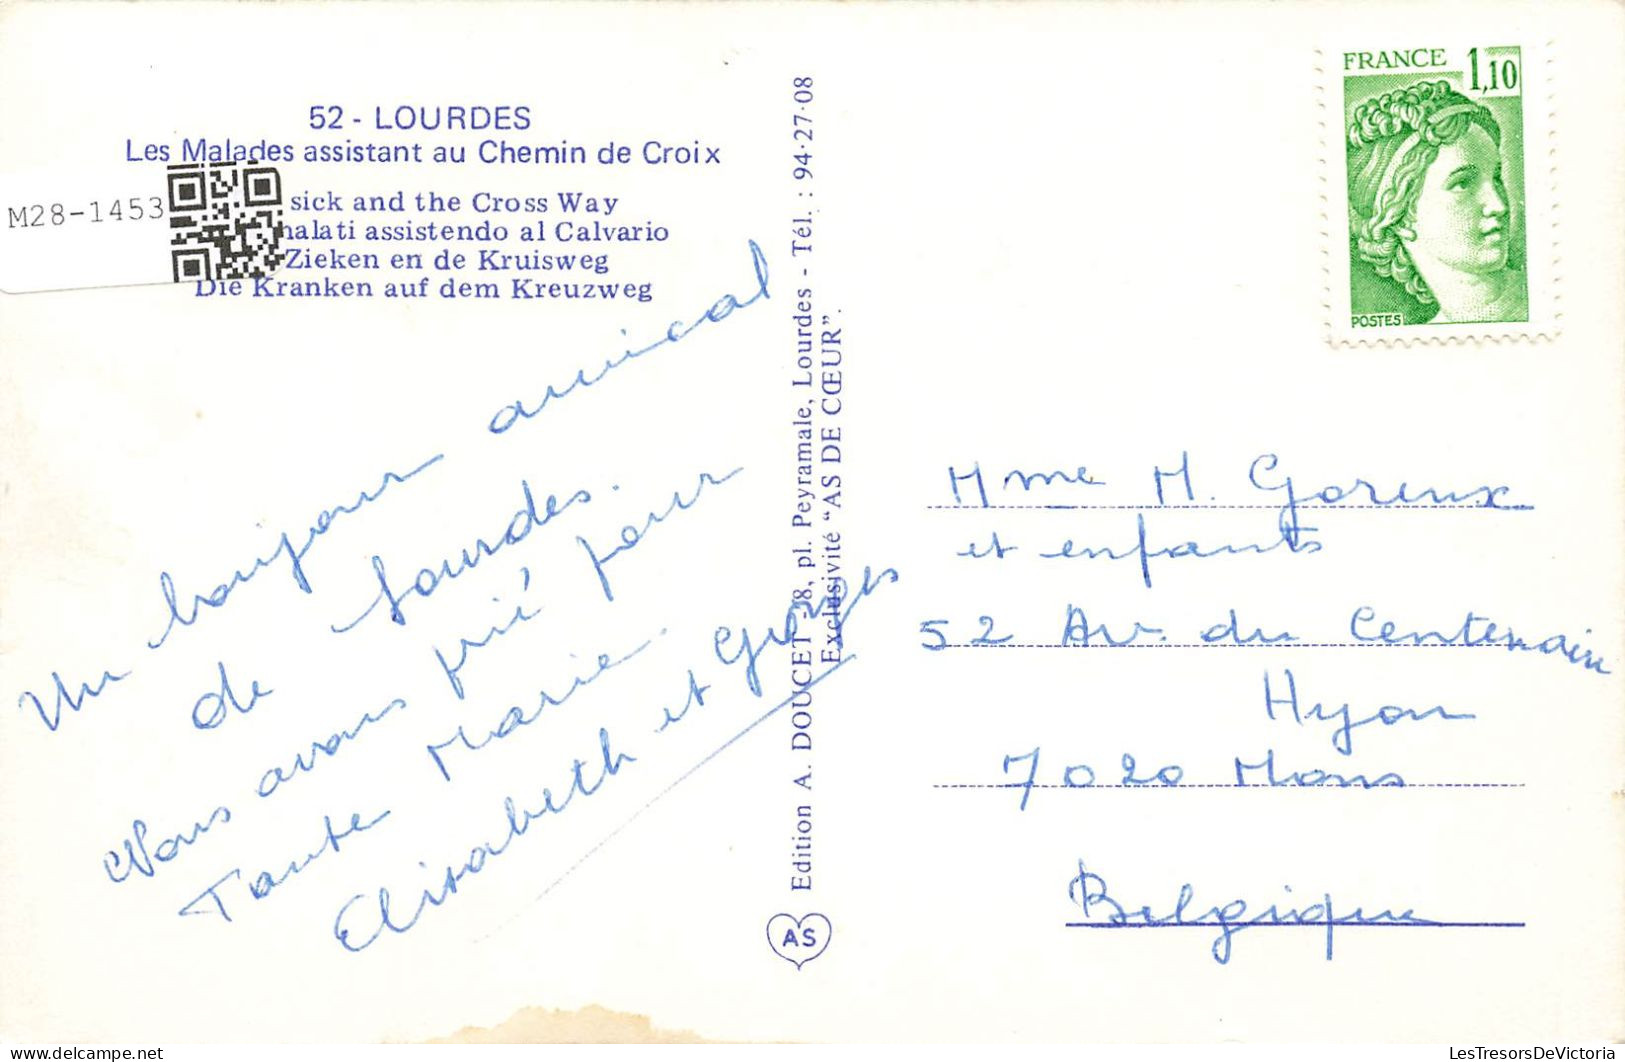 52 - LOURDES
Les Malades assistant au Chemin de Croix
M28-1453
sick and the Cross Way
malati assistendo al Calvario
Zieken en de Kruisweg
Die Kranken auf dem Kreuzweg
Un bonjour amical
de Lourdes.
Nous avons prié pour
Tante Marie.
Elisabeth et Georges
Edition A. DOUCET - 38, pl. Peyramale, Lourdes - Tél. : 94·27·08
Exclusivité “AS DE CŒUR”.
AS
FRANCE 1,10
POSTES
Mme M. Goreux
et enfants
52 Av. du Centenaire
Hyon
7020 Mons
Belgique
LesTresorsDeVictoria